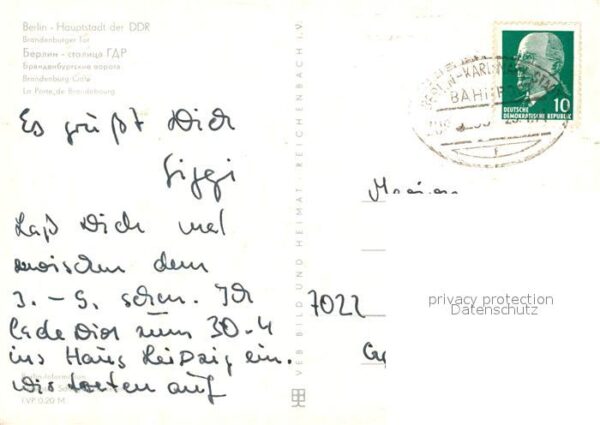 Berlin - Hauptstadt der DDR
Brandenburger Tor
Берлин - столица ГДР
Бранденбургские ворота
Brandenburg Gate
La Porte de Brandebourg
Es grüßt Dich
Siggi
Laß Dich mal
zwischen dem
3. - 9. sehen. Ich
lade Dich zum 30.4
ins Haus Leipzig ein.
Wir treten auf
I.VP. 0.20 M
VEB BILD UND HEIMAT · REICHENBACH i.V.
BAHNPOST
10
DEUTSCHE
DEMOKRATISCHE REPUBLIK
7022
privacy protection
Datenschutz